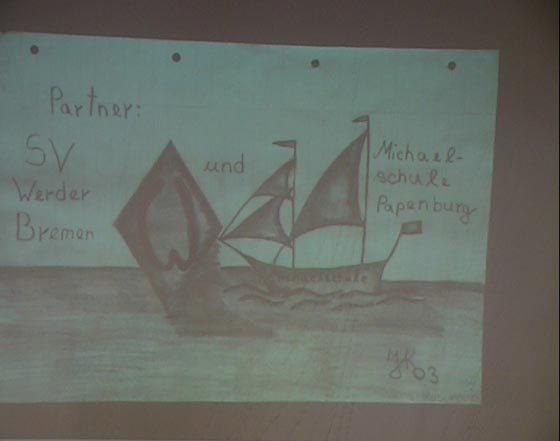 Partner:
SV
Werder
Bremen
und
Michael-
schule
Papenburg
Michaelschule
03